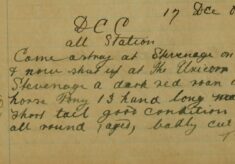 17 Dce 0
D C C
all Station
Come astray at Stevenage on
& now shut up at The Unicorn
Stevenage a dark red roan
horse Pony 13 hand long
short tail good condition
all round aged, badly cut